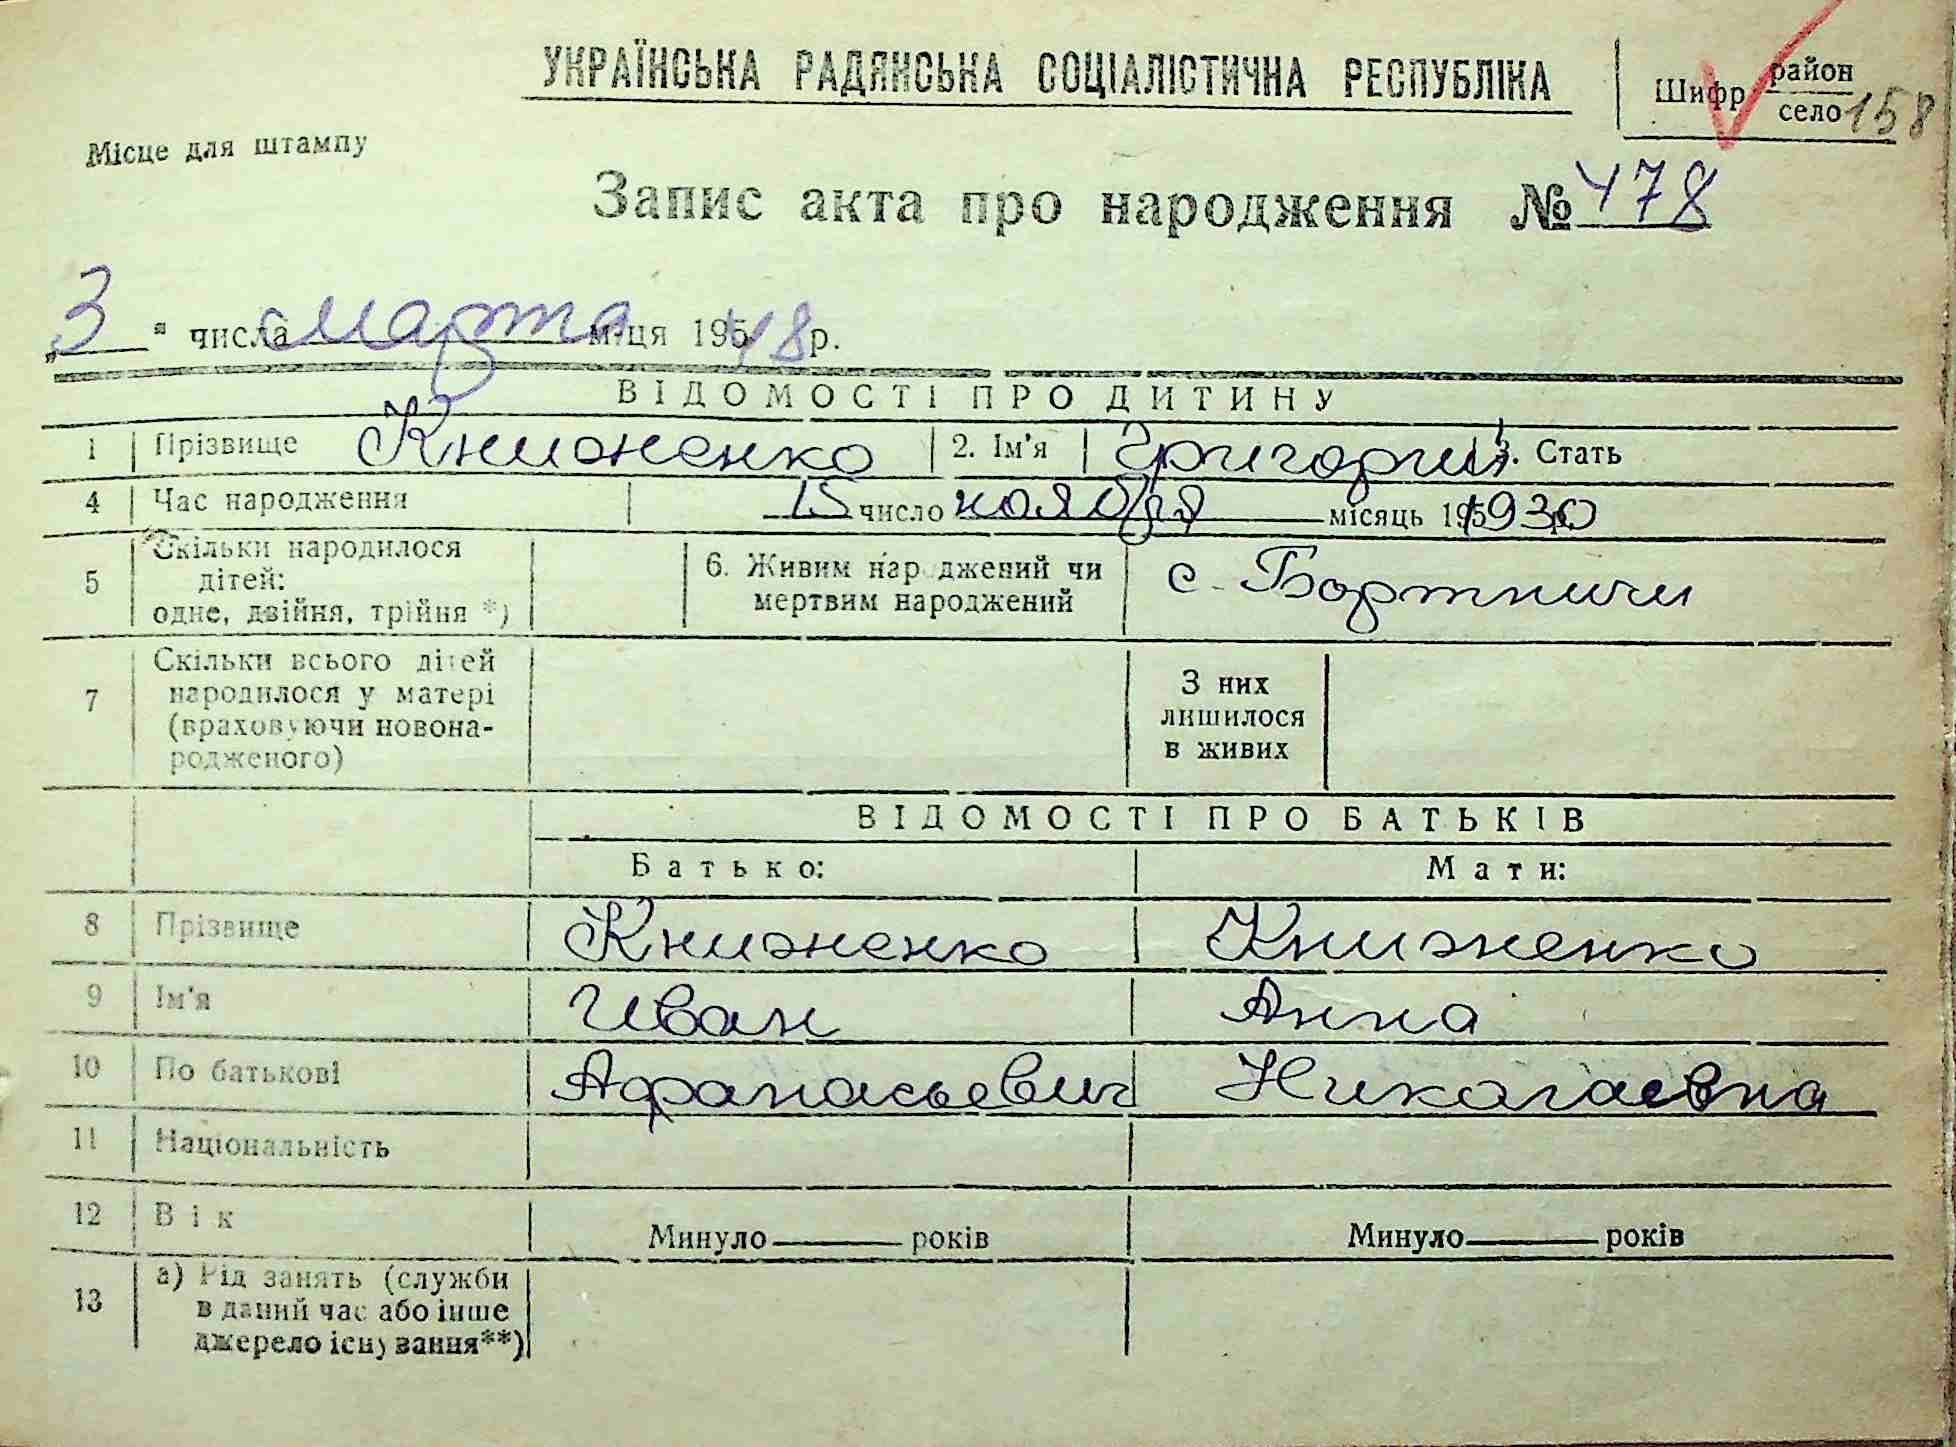 УКРАЇНСЬКА РАДЯНСЬКА СОЦІАЛІСТИЧНА РЕСПУБЛІКА
Шифр район
село 158
Місце для штампу
Запис акта про народження № 478
„3" числа марта м-ця 195 48 р.
ВІДОМОСТІ ПРО ДИТИНУ
1 Прізвище Книженко 2. Ім'я Григорий 3. Стать
4 Час народження 15 число ноября місяць 195 1930 р.
5 Скільки народилося
дітей:
одне, двійня, трійня *)
6. Живим народжений чи
мертвим народжений
с. Бортничи
7 Скільки всього дітей
народилося у матері
(враховуючи новона-
родженого)
З них
лишилося
в живих
ВІДОМОСТІ ПРО БАТЬКІВ
Батько: Мати:
8 Прізвище Книженко Книженко
9 Ім'я Иван Анна
10 По батькові Афанасьевич Николаевна
11 Національність
12 Вік Минуло років Минуло років
13 а) Рід занять (служби
в даний час або інше
джерело існування**)